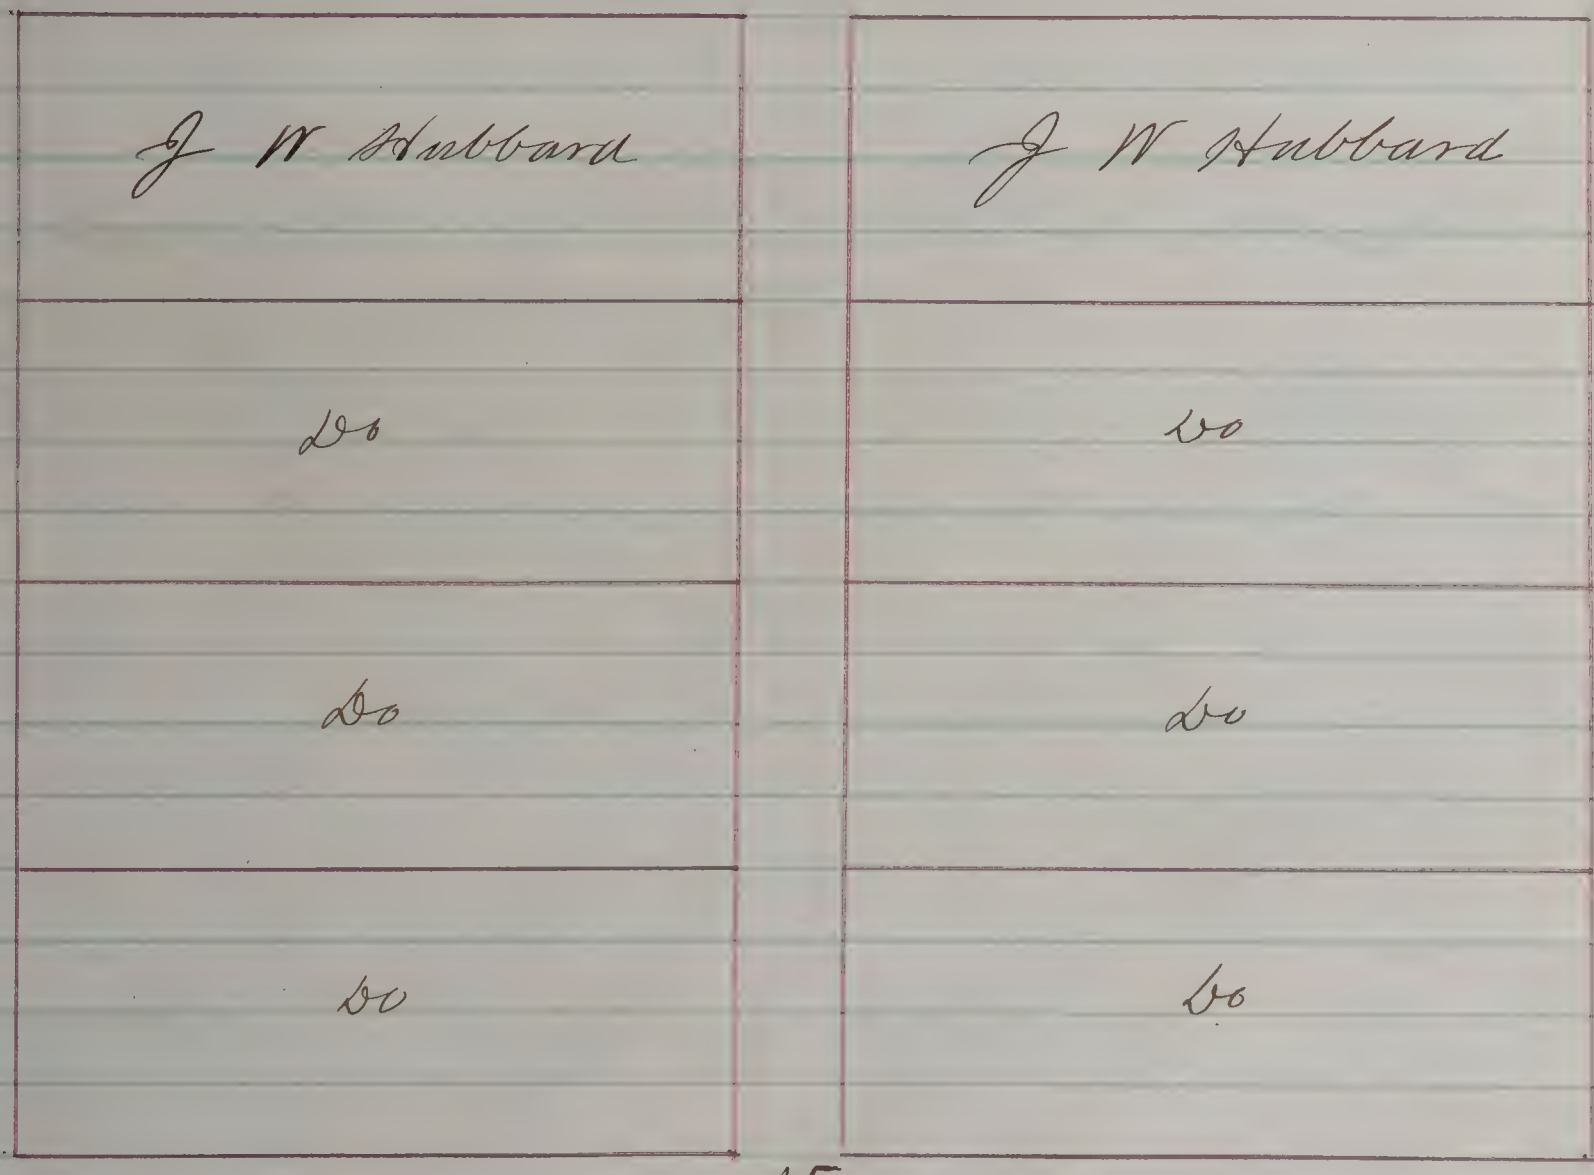 J W Hubbard
J W Hubbard
Do
Do
Do
Do
Do
Do